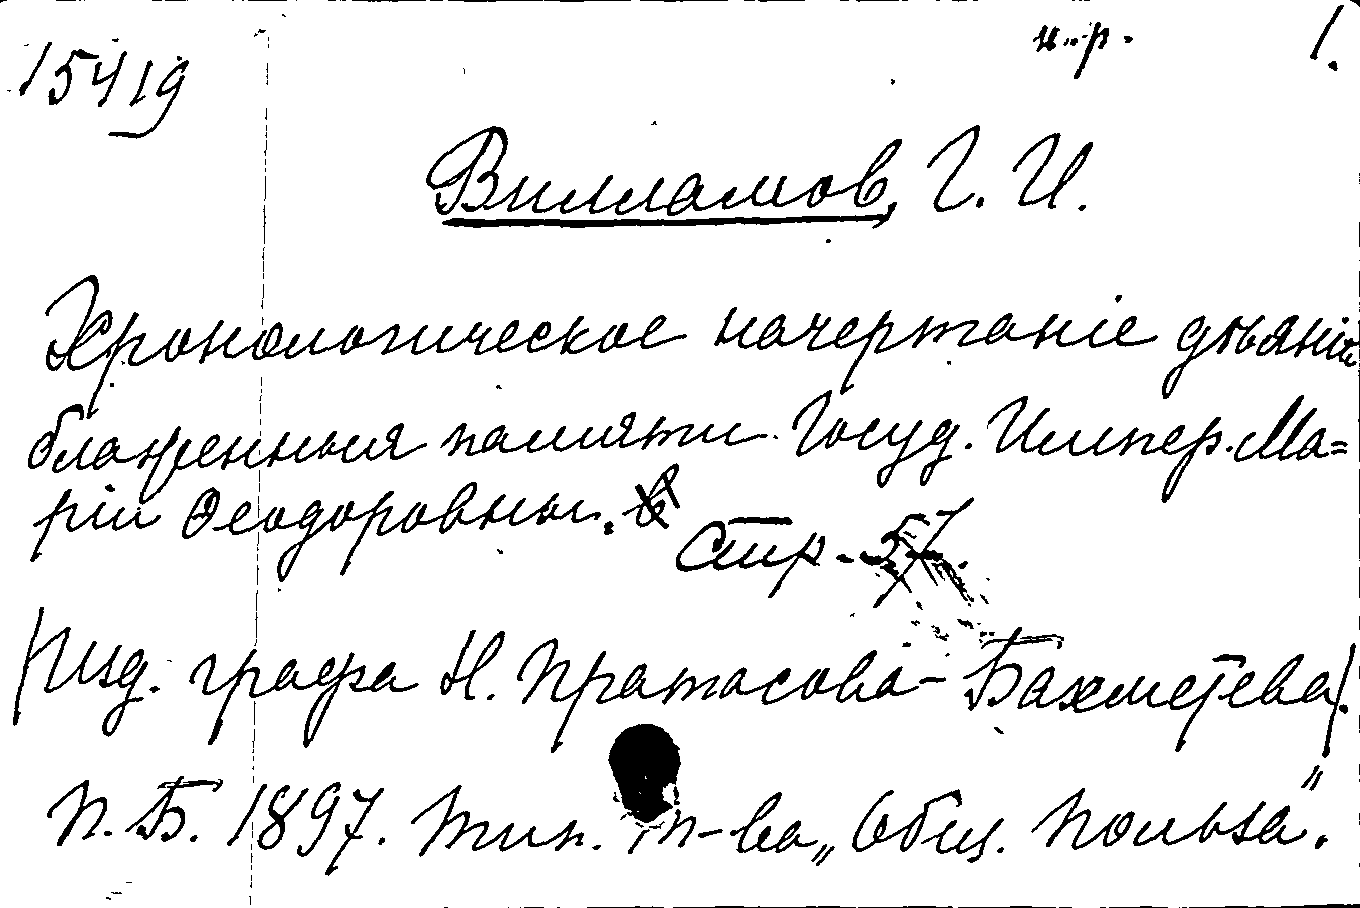 15419
и.р.
1.
Вилламов, Г. И.
Хронологическое начертаніе дѣяній
блаженныя памяти Госуд. Импер. Ма=
ріи Ѳеодоровны.
Стр. 57
(Изд. графа Н. Пратасова-Бахметева).
П. Б. 1897. Тип. Т-ва „Общ. Польза".